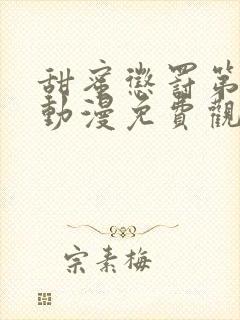 甜蜜懲罰第
動漫免費觀
宗素梅